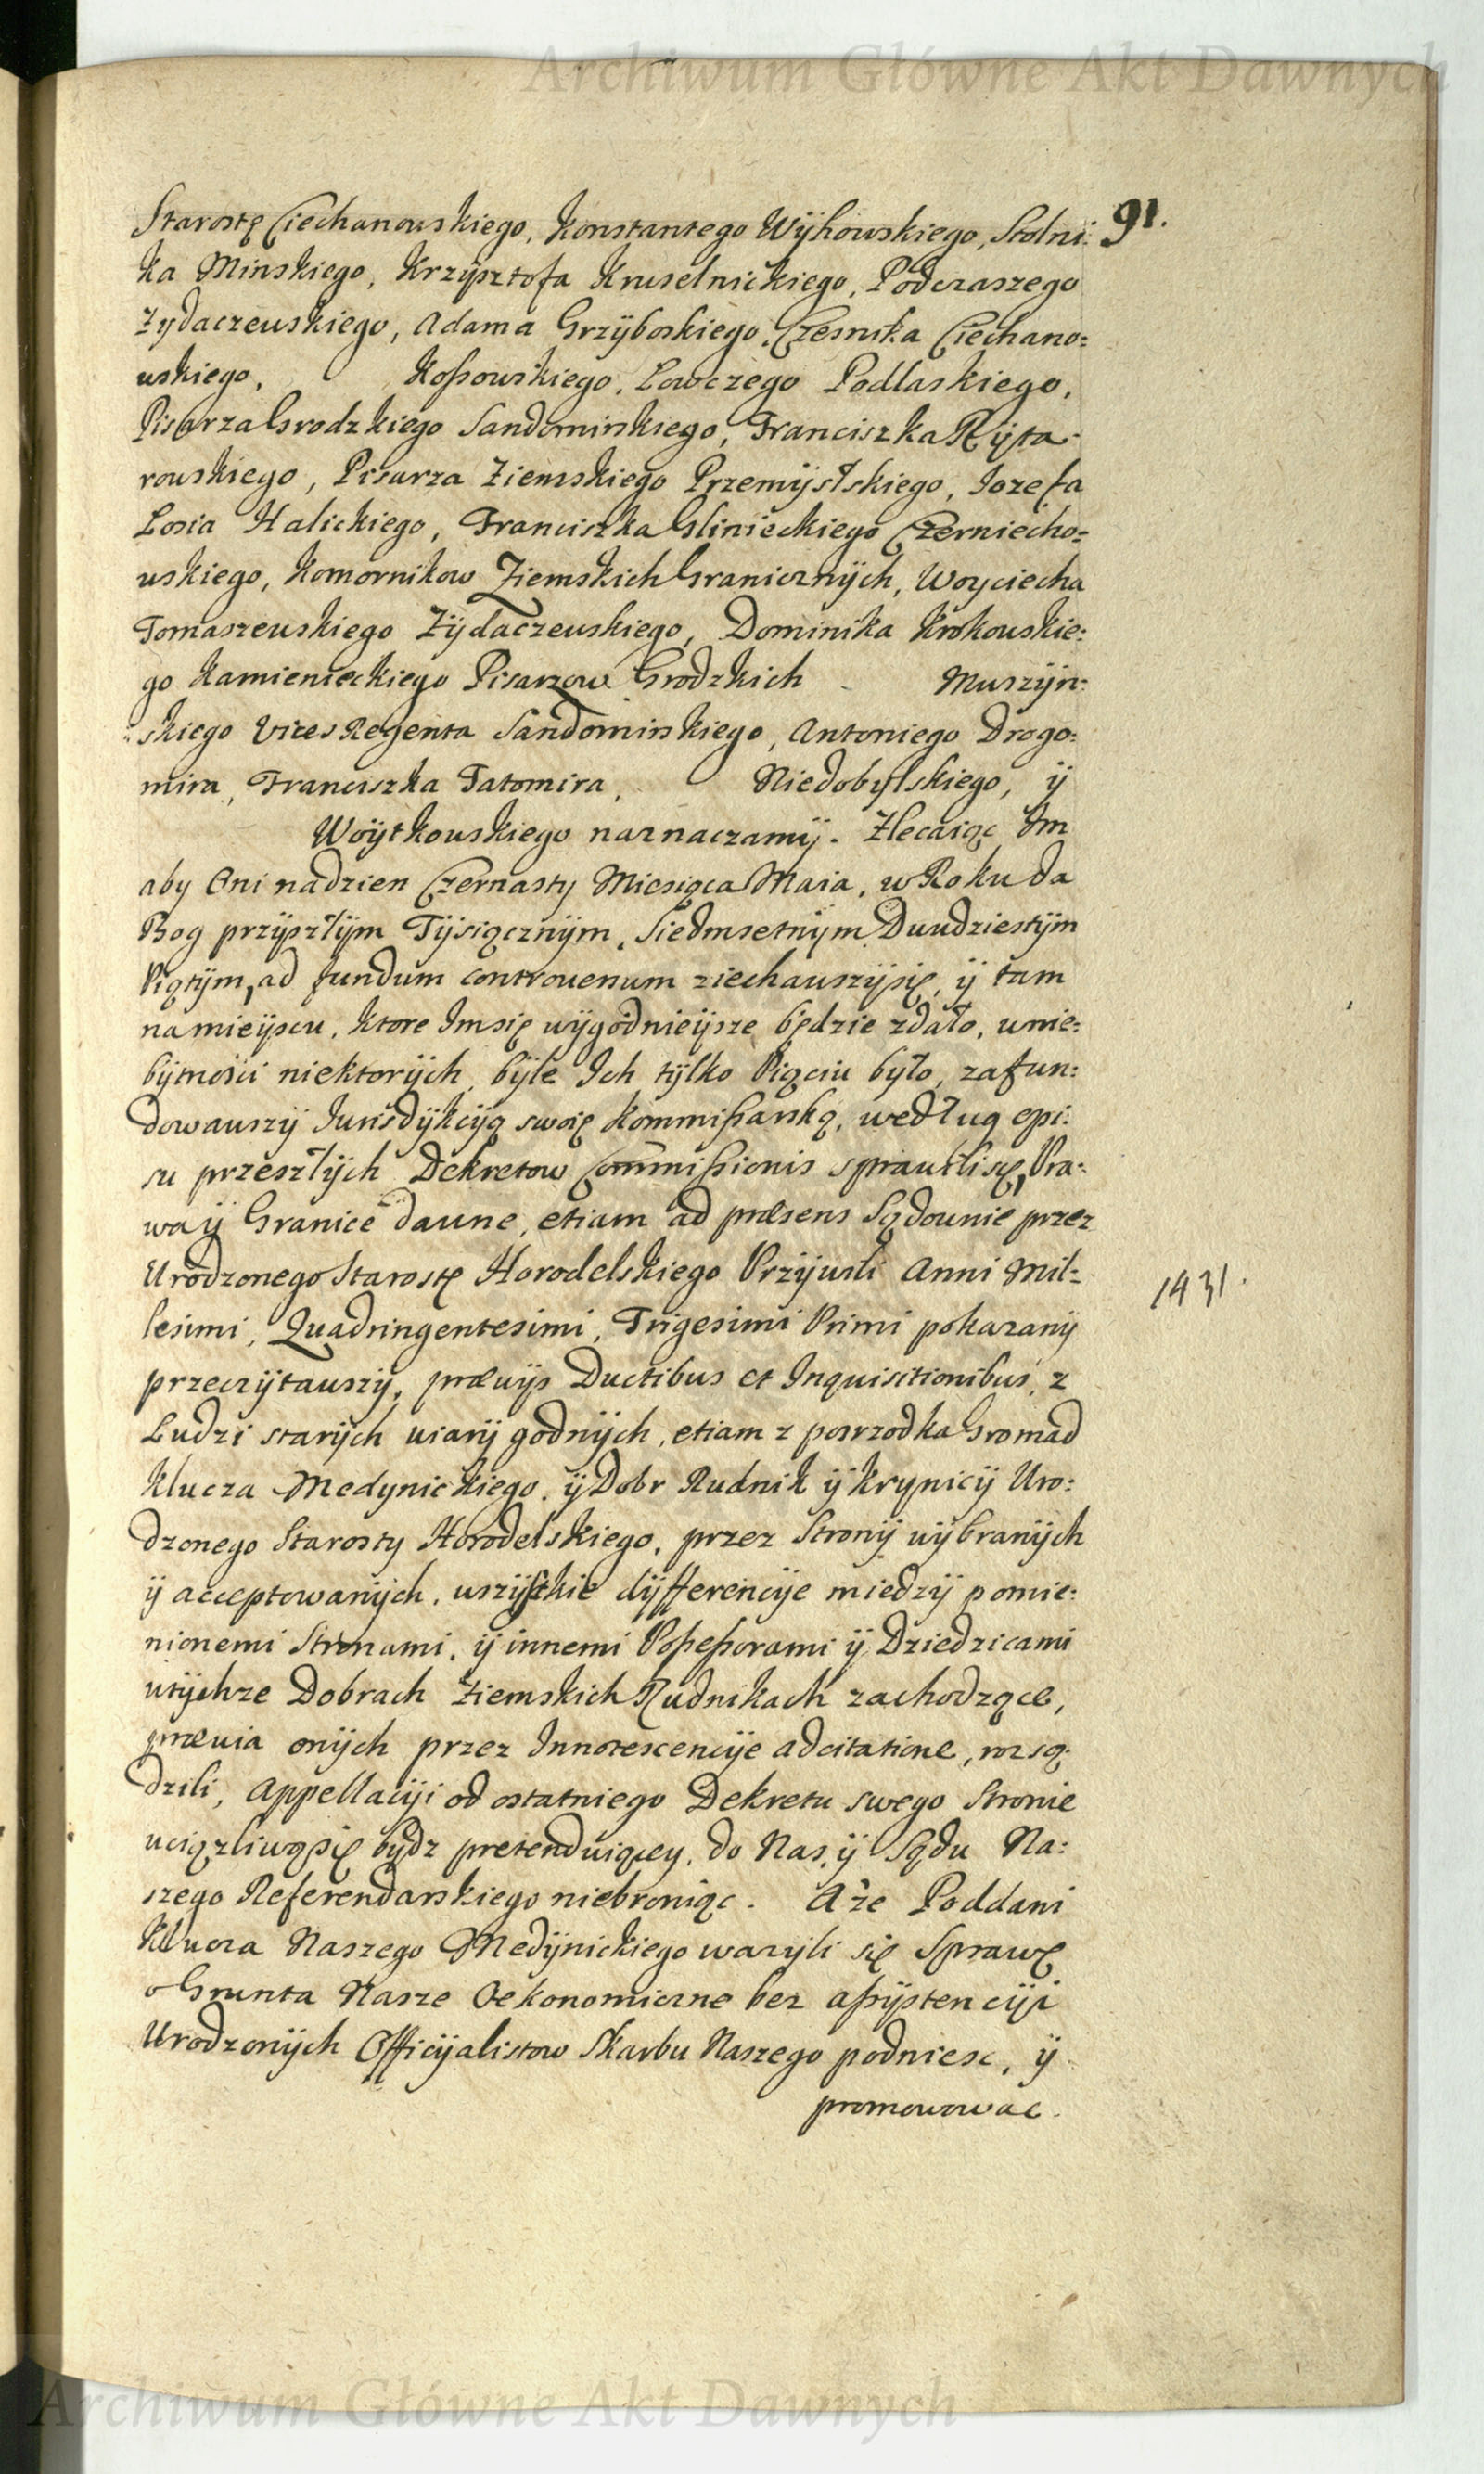 Archiwum Główne Akt Dawnych
91.
Starostę Ciechanowskiego, Konstantego Wÿhowskiego, Stolni:
ka Minskiego, Krzÿsztofa Kruselnickiego, Podczaszego
Zydaczewskiego, Adama Grzÿboskiego, Czesnika Ciechano:
wskiego, Koßowskiego, Lowczego Podlaskiego,
Pisarza Grodzkiego Sandomirskiego, Franciszka Rÿta:
rowskiego, Pisarza Ziemskiego Przemÿslskiego, Iozefa
Losia Halickiego, Franciszka Glinieckiego Czerniecho:
wskiego, Komornikow Ziemskich Granicznÿch, Woyciecha
Tomaszewskiego Zÿdaczewskiego, Dominika Krokowskie:
go Kamienieckiego Pisarzow Grodzkich Muszÿn:
skiego Vices Regenta Sandomirskiego, Antoniego Drogo:
mira, Franciszka Tatomira, Niedobylskiego, ÿ
Woÿtkowskiego naznaczamÿ. Zlecaiąc Im
aby Oni nadzien Czternasty Miesiąca Maia, w Roku da
Bog przÿszłÿm Tÿsiącznÿm, Siedmsetnÿm Dwudziestÿm
Piątÿm, ad fundum controversum ziechawszÿsię, ÿ tam
na mieÿscu, ktore Imsię wÿgodnieÿsze będzie zdało, w nie:
bÿtnosci niektorÿch, bÿle Ich tÿlko Pięciu było, zafun:
dowawszÿ Iurisdÿkcÿą swoię Kommißarską, według opi:
su przeszłÿch Dekretow Commißionis sprawili się, Pra:
wa ÿ Granice dawne, etiam ad præsens Sądownie przez
Urodzonego Starostę Horodelskiego Przÿwili Anni Mil:
1431.
lesimi, Quadringentesimi, Trigesimi Primi pokazanÿ
przeczÿtawszÿ, præviÿs Ductibus et Inquisitionibus, z
Ludzi starÿch wiarÿ godnÿch, etiam z posrzodka Gromad
Klucza Medynickiego, ÿ Dobr Rudnik ÿ Krynicÿ Uro:
dzonego Starosty Horodelskiego, przez Stronÿ wÿbranÿch
ÿ acceptowanÿch, wszÿstkie dÿfferencÿe miedzÿ pomie:
nionemi Stronami, ÿ innemi Poßeßorami ÿ Dziedzicami
wtÿchze Dobrach Ziemskich Rudnikach zachodzące,
prævia onÿch przez Innotescencÿe adcitatione, rozsą:
dzili, Appellacÿi od ostatniego Dekretu swego Stronie
uciązliwąsię bydz pretenduiącey, do Nas, ÿ Sądu Na:
szego Referendarskiego niebroniąc. A że Poddani
Klucza Naszego Medÿnickiego wazÿli się Sprawę
o Grunta Nasze Oekonomiczne bez aßÿstencÿi
Urodzonÿch Officÿalistow Skarbu Naszego podniesc, ÿ
promowowac.
Archiwum Główne Akt Dawnych